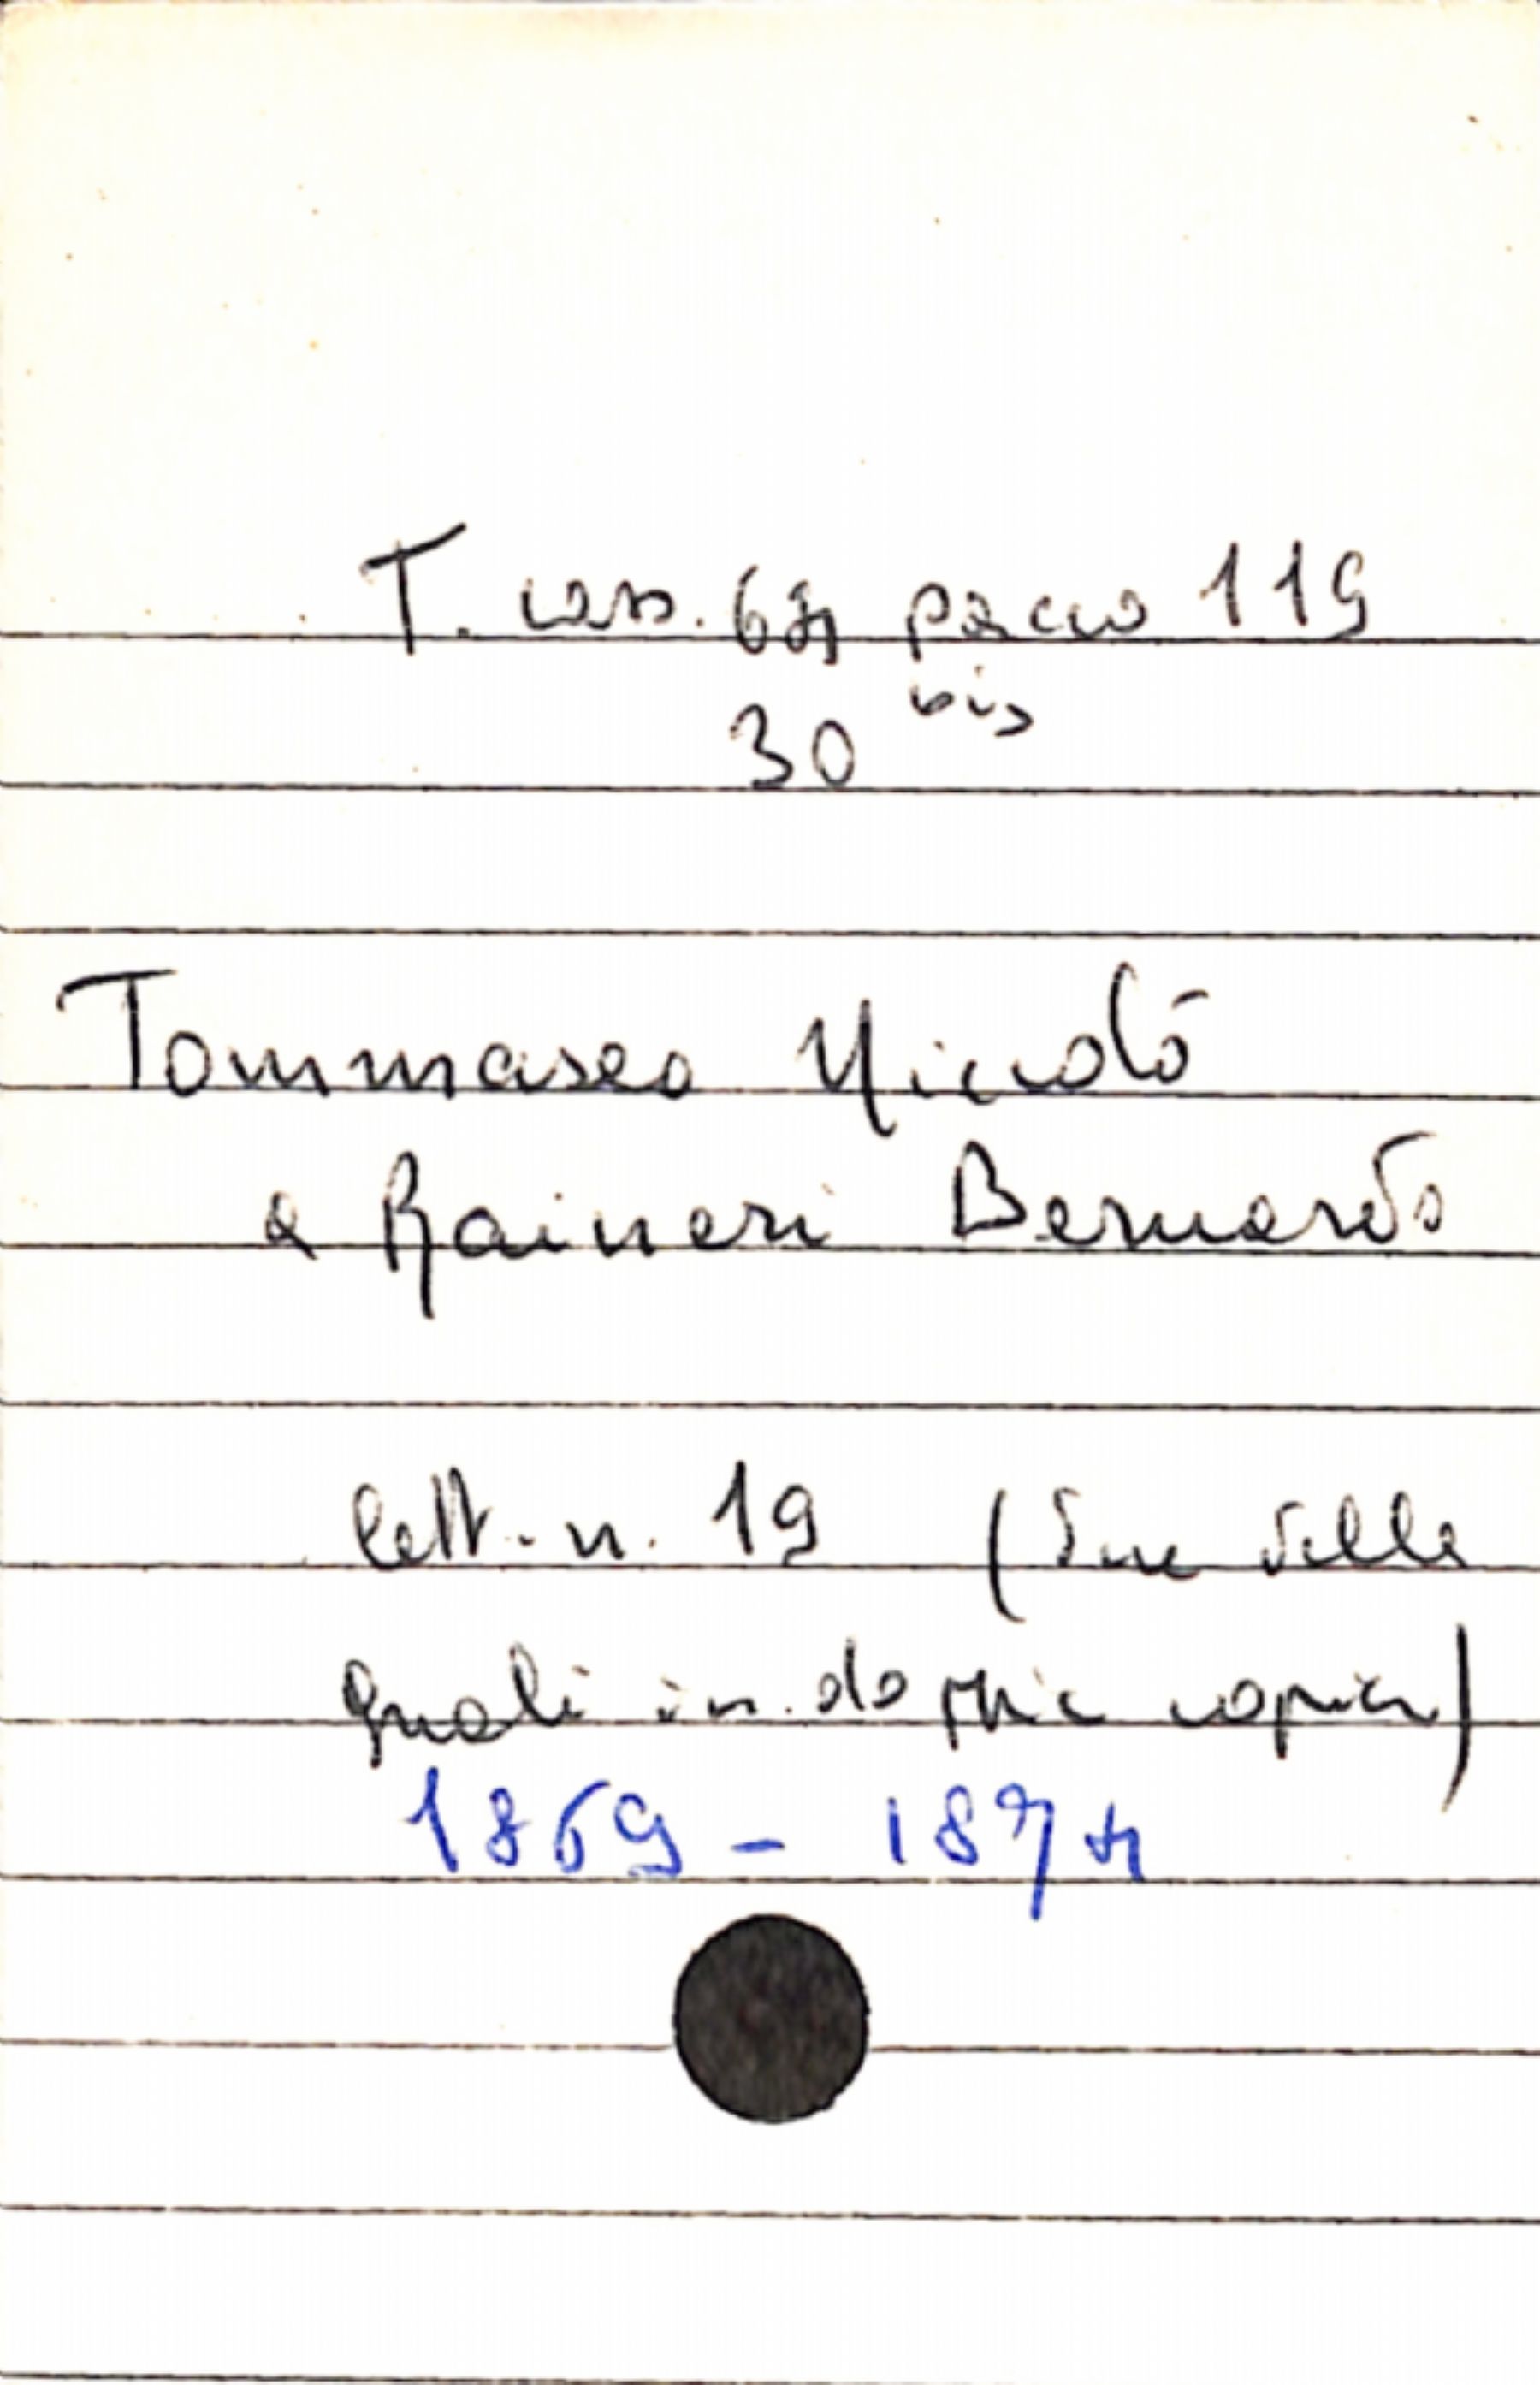 T. cass. 64 pacco 119
bis
30
Tommaseo Niccolò
a Raineri Bernardo
lett. n. 19 (due delle
quali in doppia copia)
1869 - 1874